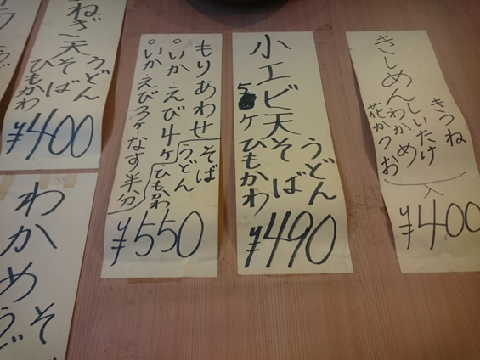 きしめん
きつね
しいたけ
わかめ
花かつお
入
¥400
小エビ天
5ヶ
うどん
そば
ひもかわ
¥490
もりあわせ
そば
うどん
ひもかわ
○いか えび4ヶ
○いか えび3ヶ なす半分
¥550
ねぎ天
うどん
そば
ひもかわ
¥400
わかめ
そ
うど